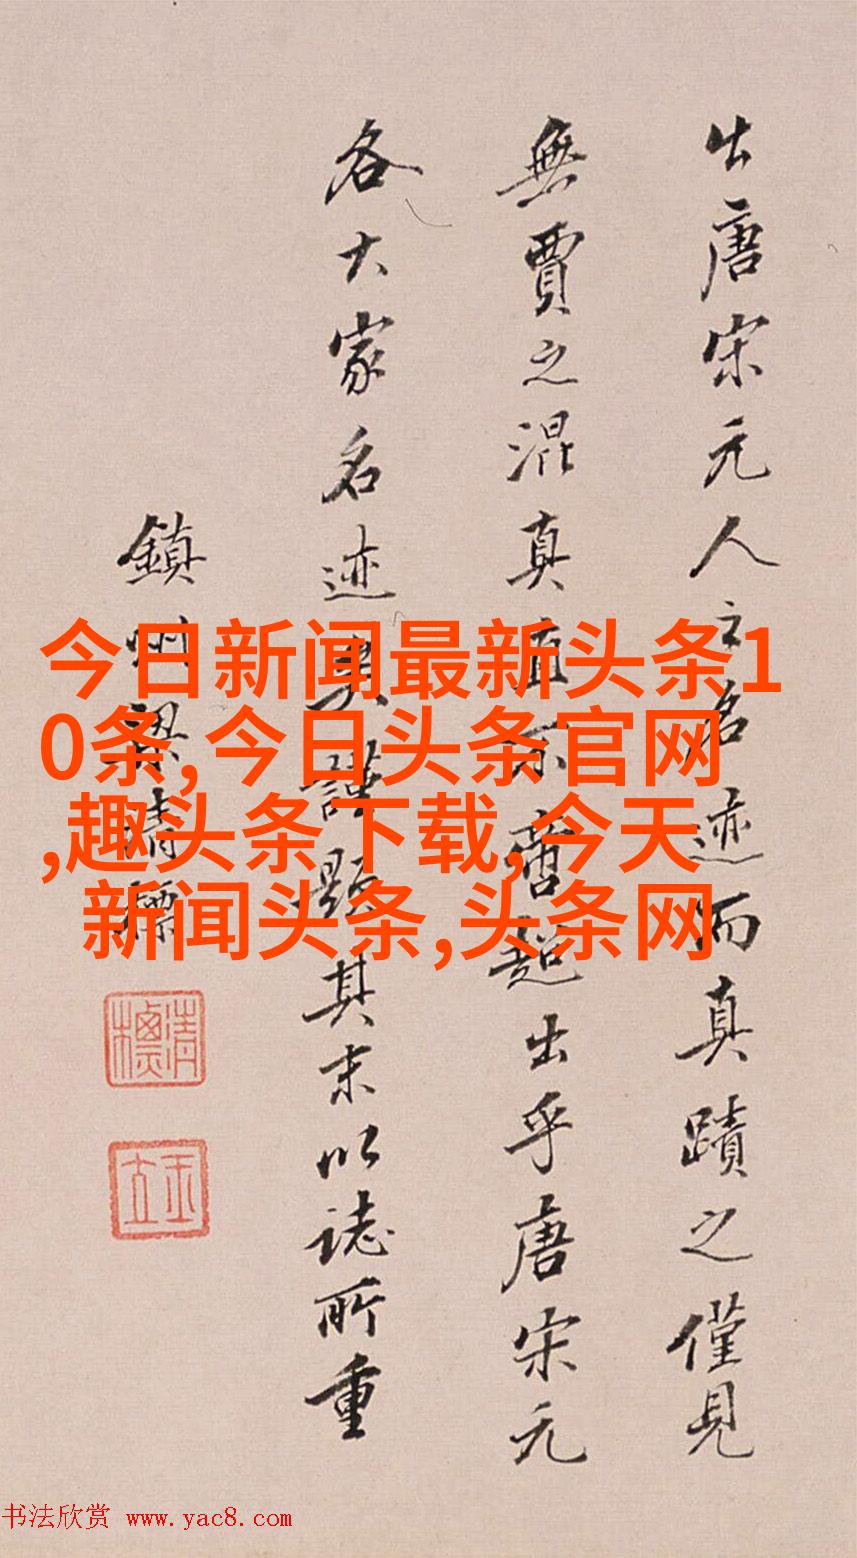 出唐宋元人之名迹而真蹟之僅見
無賈之混真直不啻超出乎唐宋元
各大家名迹矣謹題其末以誌所重
鎮州梁清標
清標
玉立
今日新闻最新头条1
0条,今日头条官网
,趣头条下载,今天
新闻头条,头条网
书法欣赏 www.yac8.com